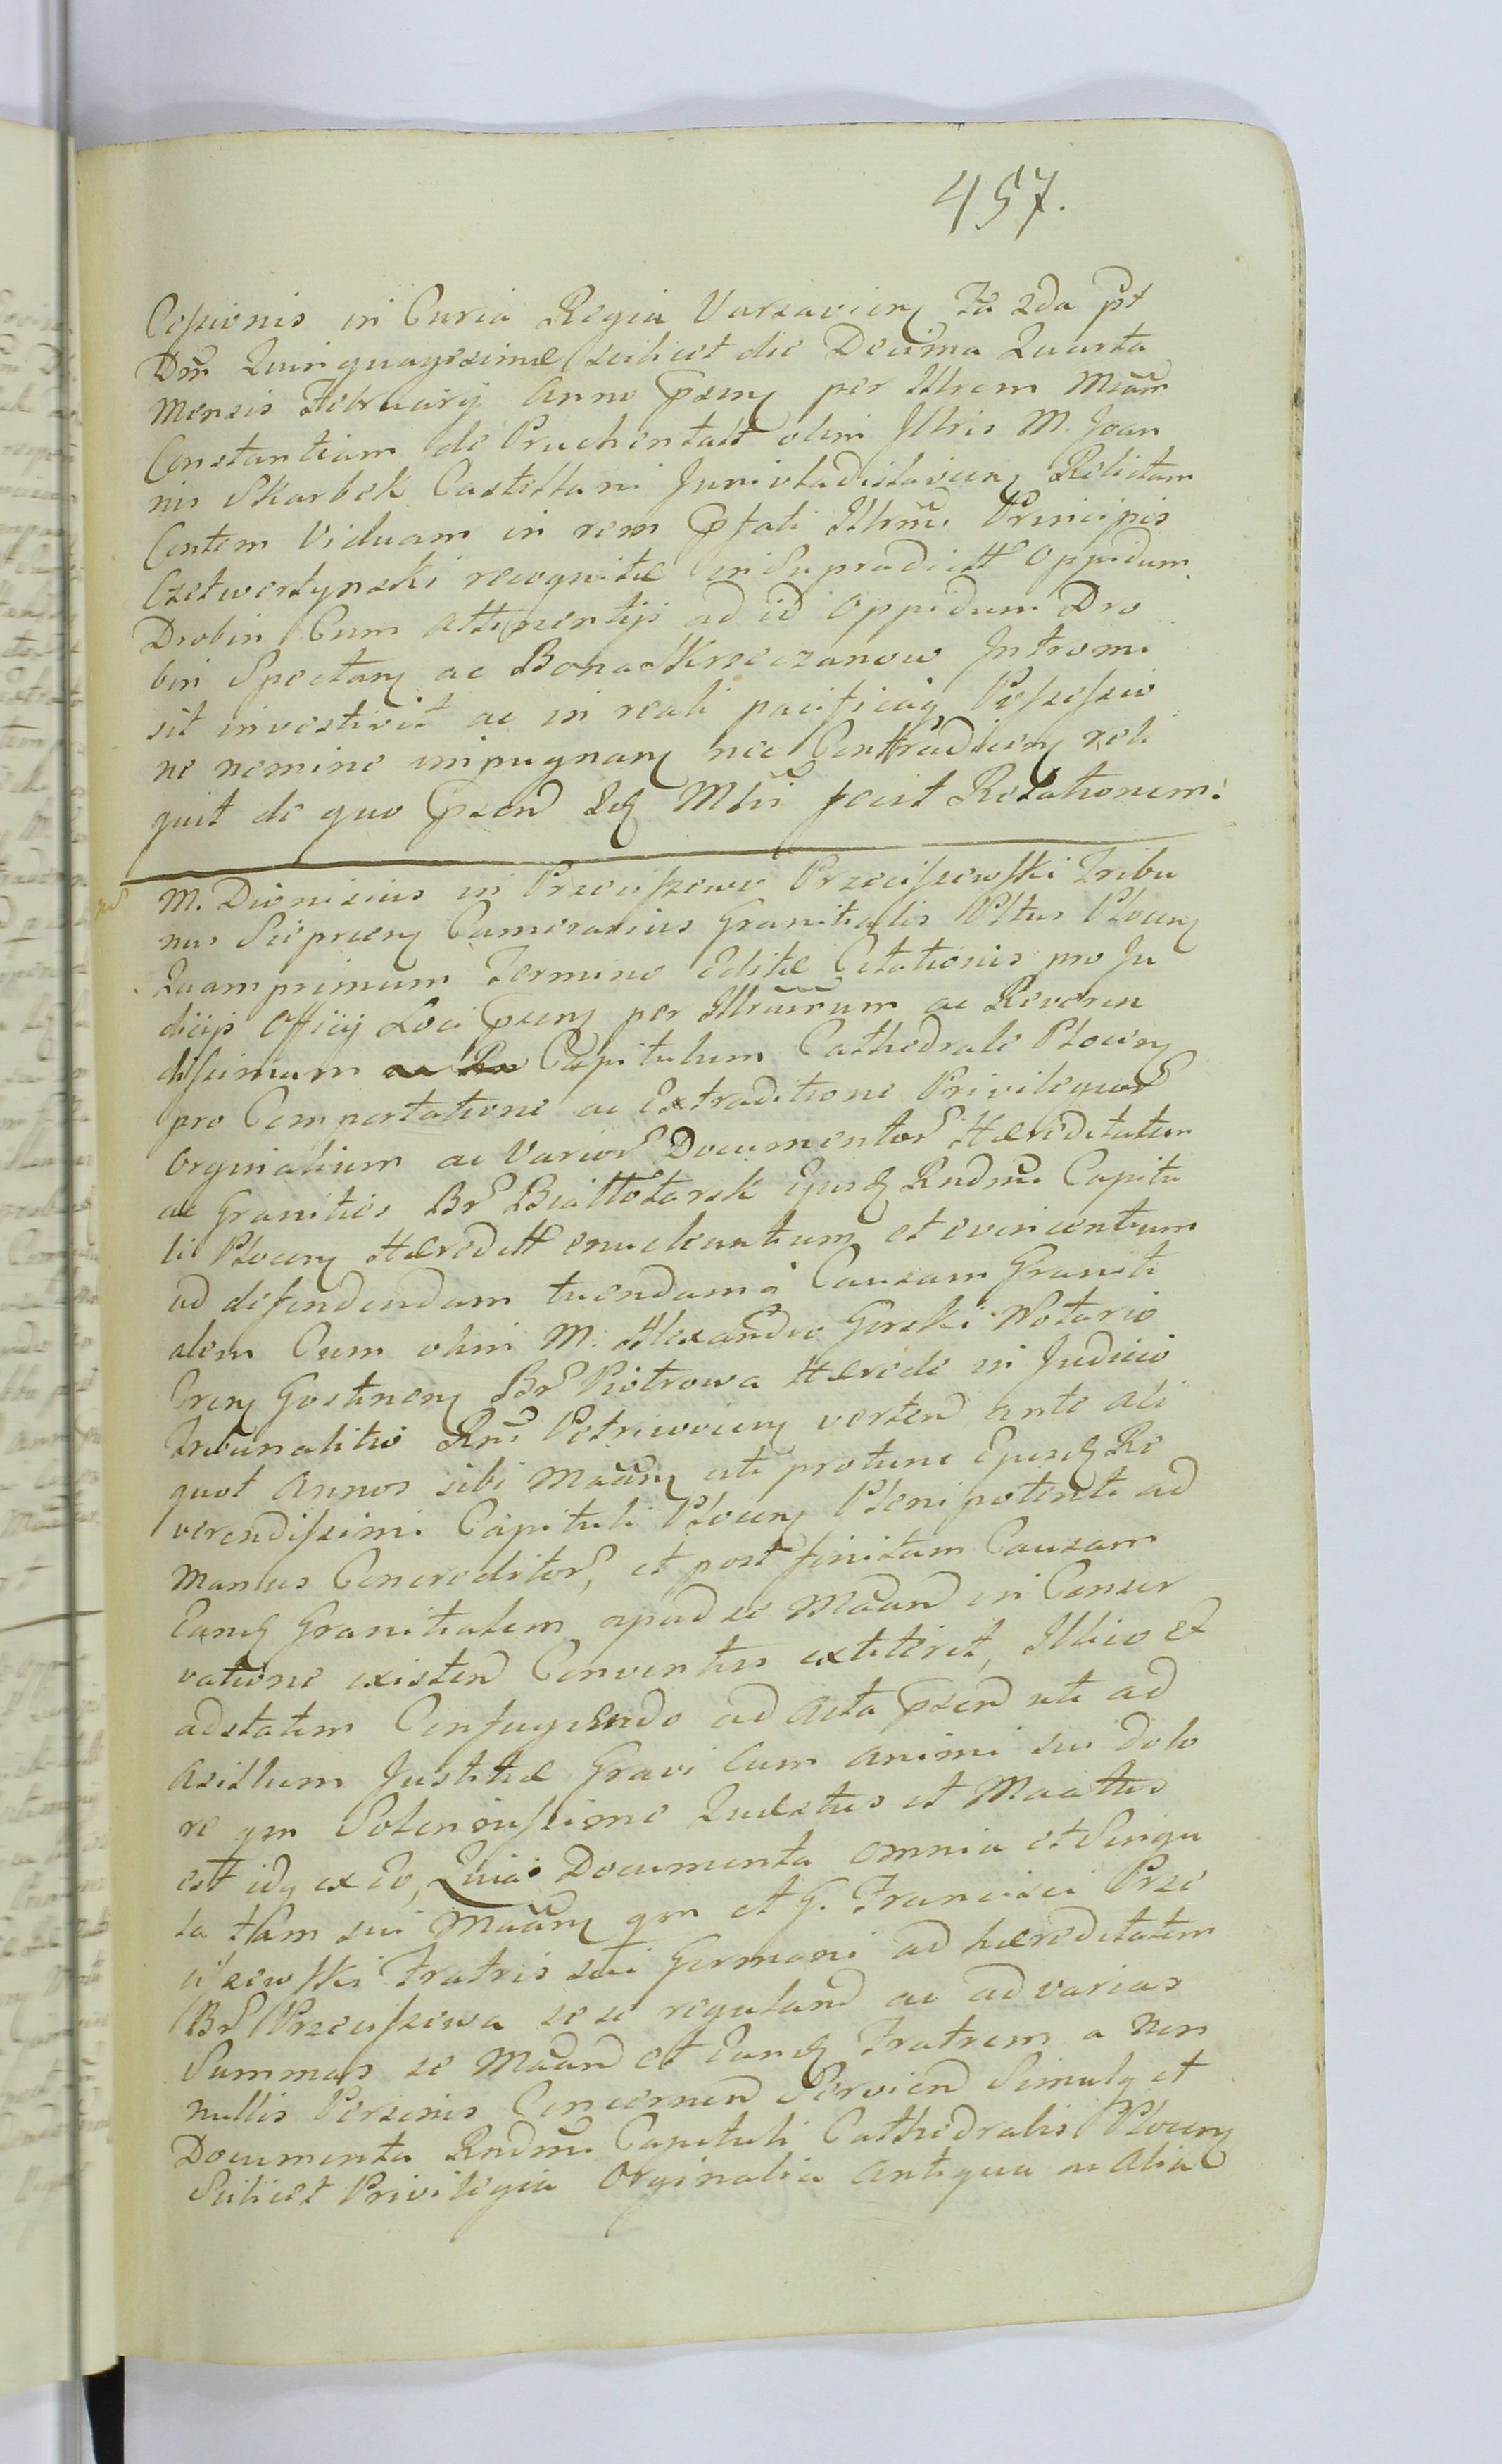 457.
Cessionis in Curia Regia Varsavien fa 2da pt
Dm̃ Quinquagesimæ scilicet die Decima Quarta
Mensis February Anno psen per Illrem Mcam
Constantiam de Pruchentall olim Illris M. Joan
nis Skarbek Castellani Junivladislavien Relictam
Contem Viduam in rem pfati Illrmi Principis
Czetwertynski recognitæ in Supradictt Oppidum
Drobin Cum attinentijs ad id Oppidum Dro
bin Spectan ac Bona Krzeczanow Intromi
sit investivit ac in reali pacificaq Possessio
ne nemine impugnan nec Contradicen reli
quit de quo psend Idq Mtri fecit Relationem.
M. Dionisius in Przeciszewo Przeciszewski Tribu
nus Sieprcen Camerarius Granitialis Pltus Plocen
Quamprimum Termino Editæ Citationis pro Ju
dicijs Officij Loci psen per Illrmum ac Reveren
dissimum Capitulum Cathedrale Plocen
pro Comportatione ac Extraditione Privilegior
Orginalium ac Varior Documentor Hæreditatem
ac Granities Br Ejusd Rndmi Capitu
li Plocen Hæreditt enucleantium et evincentium
ad defendendam tuendamq Causam Graniti
alem Cum olim M. Alexandro Gorski Notario
Cren Gostinen Br Piotrowa Hærede in Judicio
Tribunalitio Rni Petricovien verten ante ali
quot Annos sibi Mađn uti protunc Ejusd Re
verendissimi Capituli Plocen Plenipotenti ad
manus Concreditor, et post finitam Causam
Eand Granitialem apud se Mađn in Conser
vatione existen Conventus extiterit, Illico et
adstatim Confugiendo ad Acta psend uti ad
Asillum Justitiæ Gravi cum animi sui dolo
re qm Solenissime Quæstus et Mađtus
est idq ex eo, Quia Documenta omnia et Singu
la tam sui Mađn qm et G. Francisci Prze
ciszewski Fratris sui Germani ad hæreditatem
Br Przeciszewa se se reguland ac ad varias
Summas se Mađn et Eund Fratrem a non
nullis Personis Concernen Servien Simulq et
Documenta Rndmi Capituli Cathedralis Plocen
Scilicet Privilegia Orginalia Antiqua ac Alia